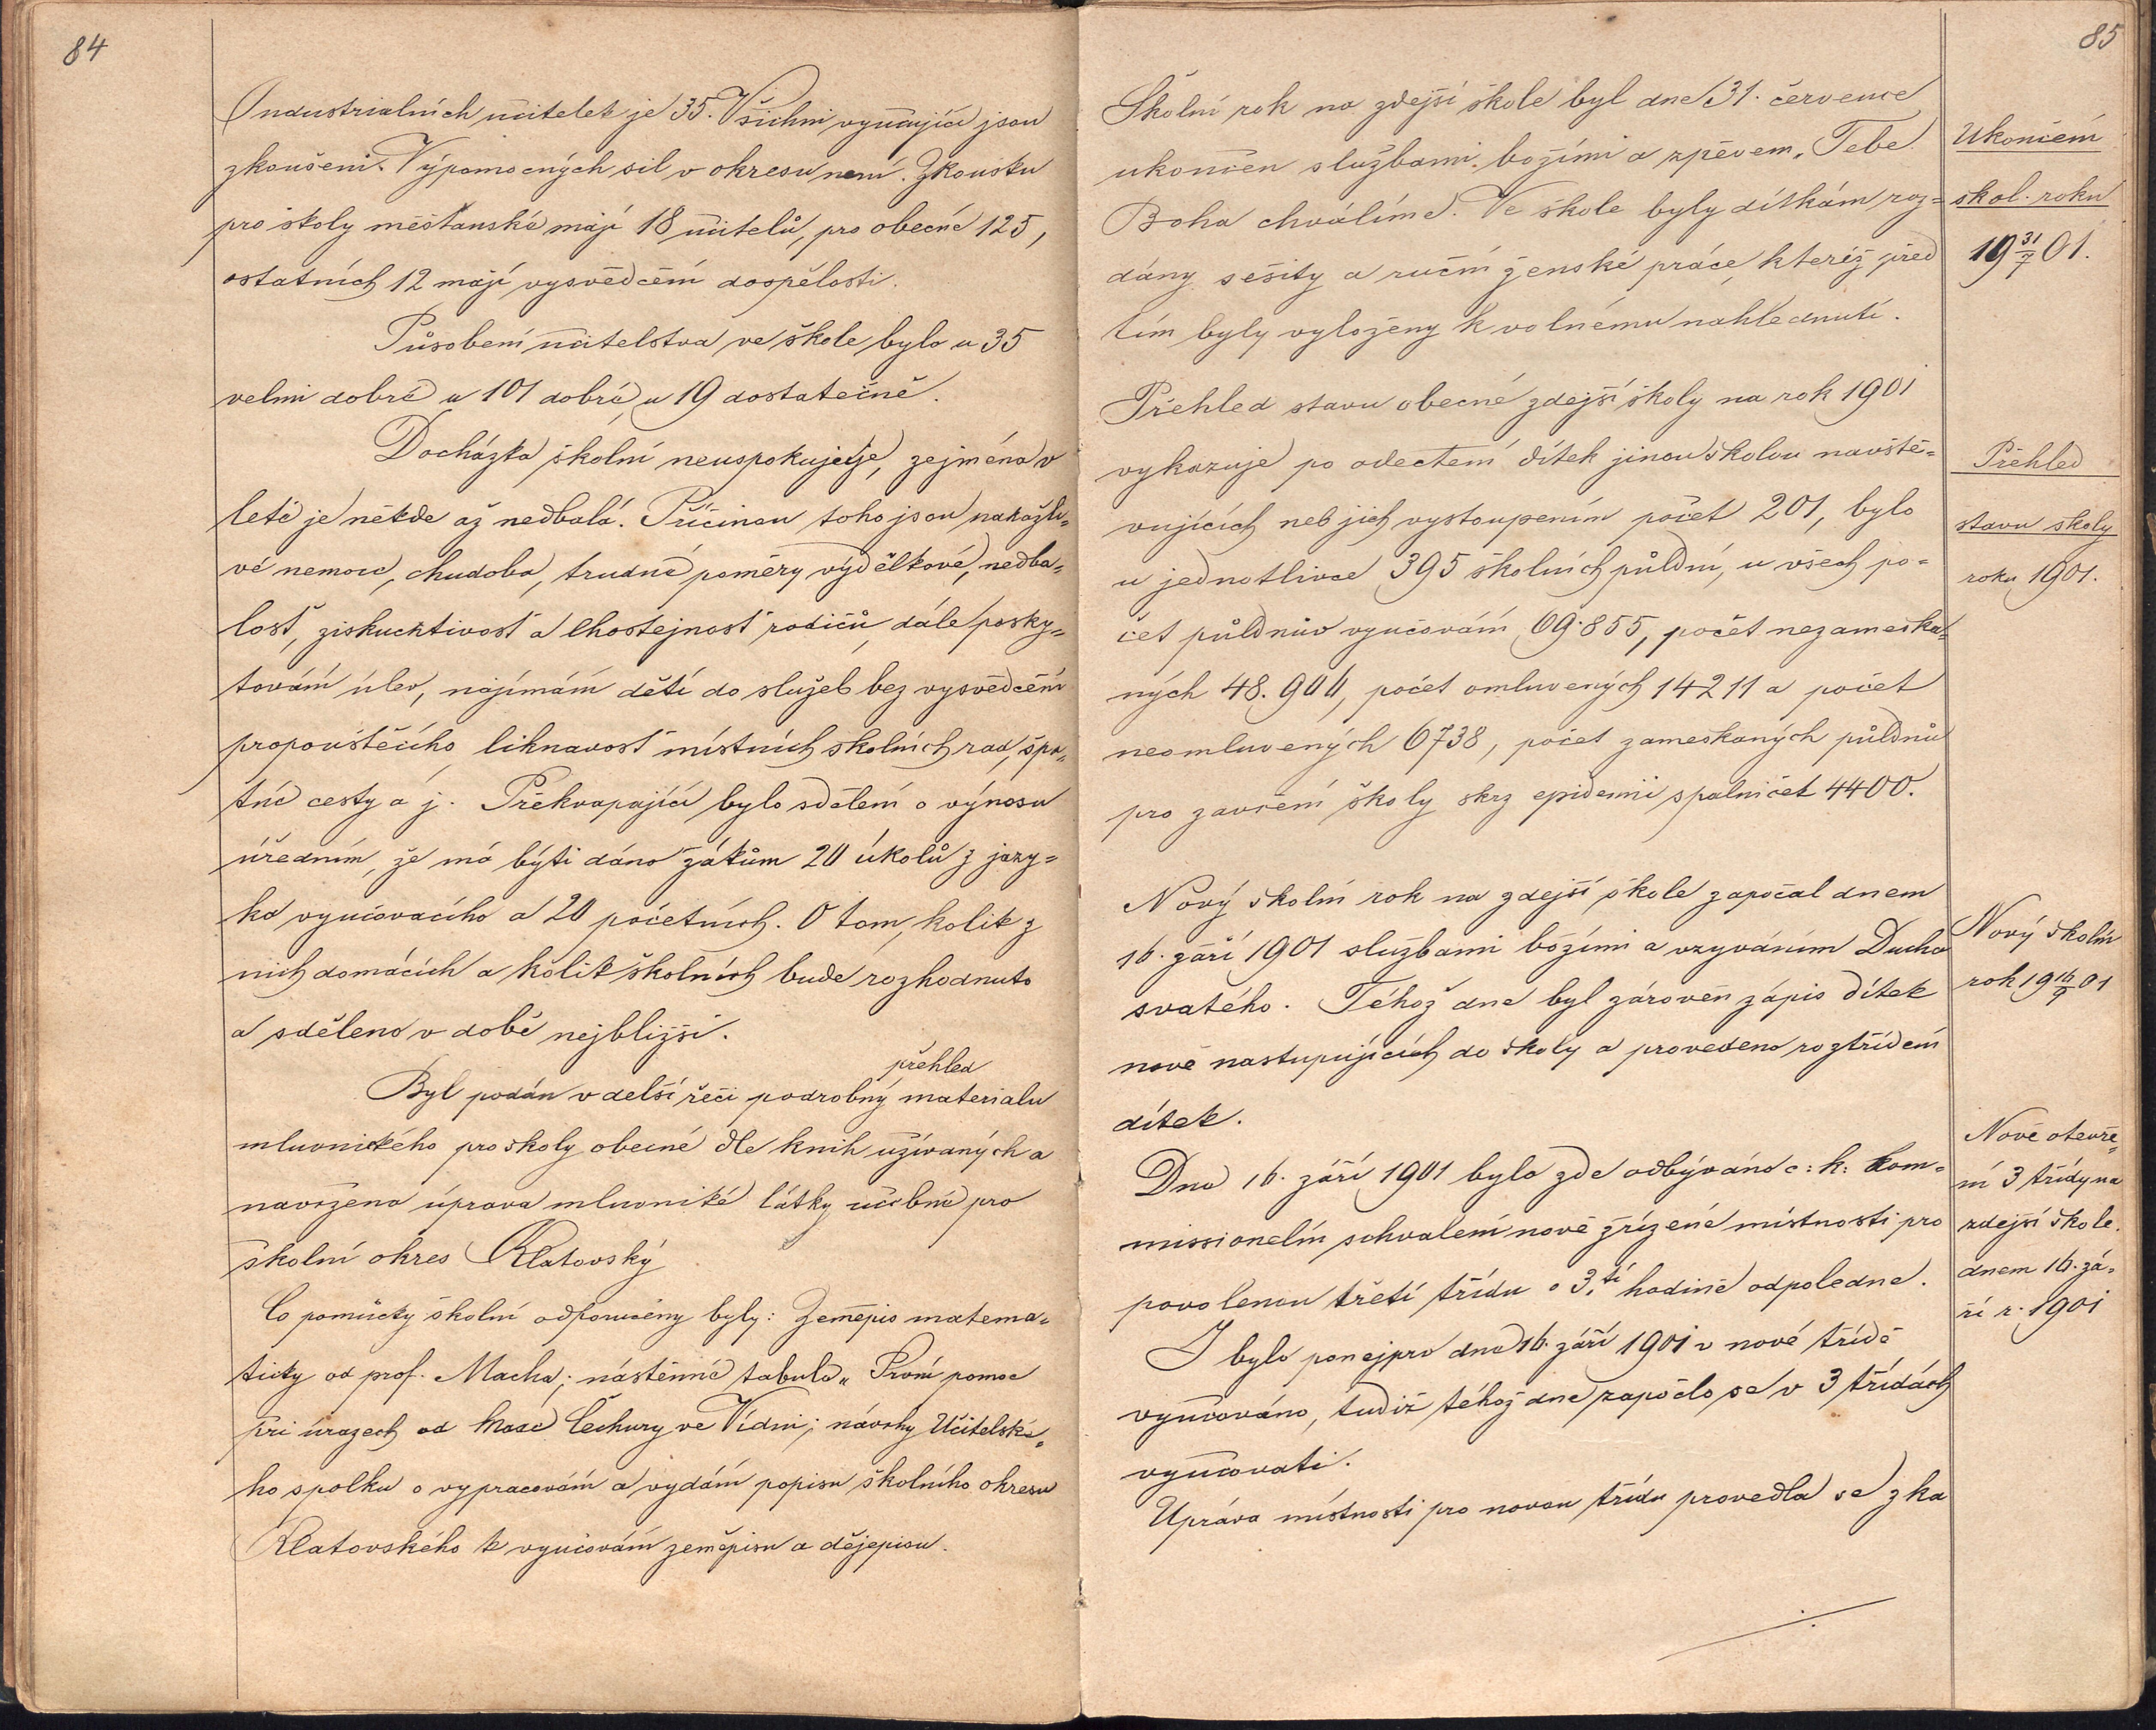 84
Industrialních učitelek je 35. Všichni vyučující jsou
zkoušeni. Výpomocných sil v okresu není. Zkoušku
pro školy měšťanské mají 18 učitelů, pro obecné 125,
ostatních 12 mají vysvědčení dospělosti.
Působení učitelstva ve škole bylo u 35
velmi dobré u 101 dobré, u 19 dostatečné.
Docházka školní neuspokujeje, zejména v
letě je někde až nedbalá. Příčinou toho jsou nakažli-
vé nemoce, chudoba, trudné poměry výdělkové, nedba-
losť, ziskuchtivosť a lhostejnosť rodičů, dále posky-
tování úlev, najímání dětí do služeb bez vysvědčení
propouštěcího, liknavosť místních školních rad, špa-
tné cesty a j. Překvapující bylo sdělení o výnosu
úředním, že má býti dáno žákům 20 úkolů z jazy-
ka vyučovacího a 20 početních. O tom, kolik z
nich domácích a kolik školních bude rozhodnuto
a sděleno v době nejbližší.
přehled
Byl podán v delší řeči podrobný materialu
mluvnického pro školy obecné dle knih užívaných a
navržena úprava mluvnické látky učebné pro
školní okres Klatovský
Co pomůcky školní odporučeny byly: Zeměpis matema-
ticky od prof. Macha; nástěnné tabule „První pomoc
při úrazech od Čechury ve Vídni; návrhy Učitelské-
ho spolku o vypracování a vydání popisu školního okresu
Klatovského k vyučování zeměpisu a dějepisu.
85
Školní rok na zdejší škole byl dne 31. července
ukončen službami božími a zpěvem „Tebe
Boha chválíme. Ve škole byly dítkám roz-
dány sešity a ruční ženské práce, kteréž před
tím byly vyloženy k volnému nahlédnutí.
Ukončení
škol. roku
19 31/7 01.
Přehled stavu obecné zdejší školy na rok 1901
vykazuje po odečtení dítek jinou školou navště-
vujících neb jich vystoupením počet 201, bylo
u jednotlivce 395 školních půldní, u všech po-
čet půldnův vyučování 69.855, počet nezameška-
ných 48.904, počet omluvených 14211 a počet
neomluvených 6738, počet zameškaných půldnů
pro zavření školy skrz epidemii spalniček 4400.
Přehled
stavu školy
roku 1901.
Nový školní rok na zdejší škole započal dnem
16. září 1901 službami božími a vzýváním Ducha
svatého. Téhož dne byl zároveň zápis dítek
nově nastupujících do školy a provedeno roztřídění
dítek.
Nový školní
rok 19 16/9 01
Dne 16. září 1901 bylo zde odbýváno c: k: kom-
missionelní schvalení nově zřízené místnosti pro
povolenou třetí třídu o 3.tí hodině odpoledne.
I bylo ponejprv dne 16. září 1901 v nové třídě
vyučováno, tudíž téhož dne započlo se v 3 třídách
vyučovati.
Úprava místnosti pro novou třídu provedla se z ka
Nově otevře-
ní 3 třídy na
zdejší škole.
dnem 16. zá-
ří r. 1901